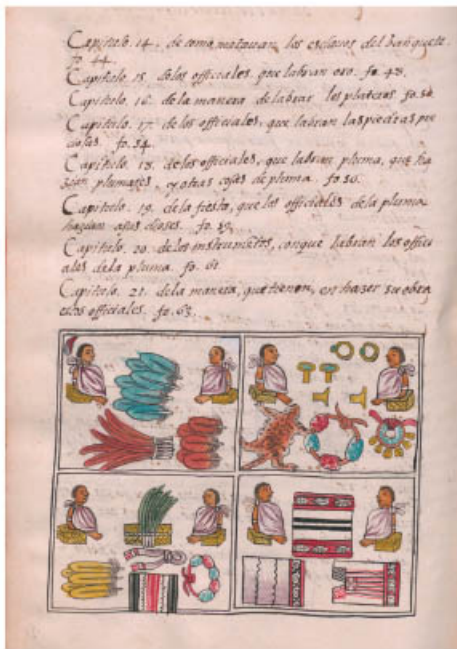 Capitulo. 14. de como matauan los esclauos del banquete.
fo. 44.
Capitulo. 15. delos officiales, que labran oro. fo. 48.
Capitulo. 16. dela manera de labrar los plateros. fo. 50.
Capitulo. 17. de los officiales, que labran las piedras pre
ciosas. fo. 54.
Capitulo. 18. de los officiales, que labran pluma, que ha
zian plumajes, y otras cosas de pluma. fo. 56.
Capitulo. 19. dela fiesta, que los officiales dela pluma
hazian a sus dioses. fo. 59.
Capitulo. 20. de los instrumētos, conque labran los offici
ales dela pluma. fo. 61
Capitulo. 21. dela manera, que tienen, en hazer su obra
estos officiales. fo. 63.